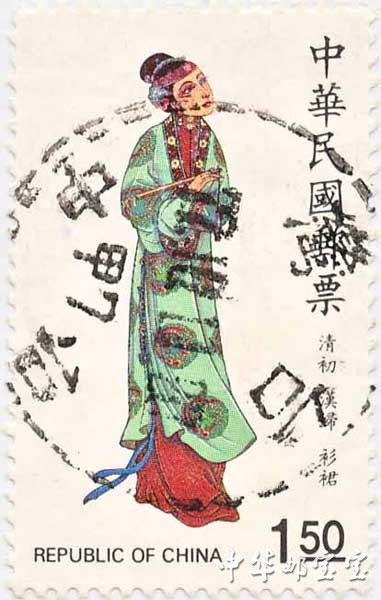 中華民國郵票
清初 漢婦 衫裙
1.50
REPUBLIC OF CHINA
中华邮宝宝